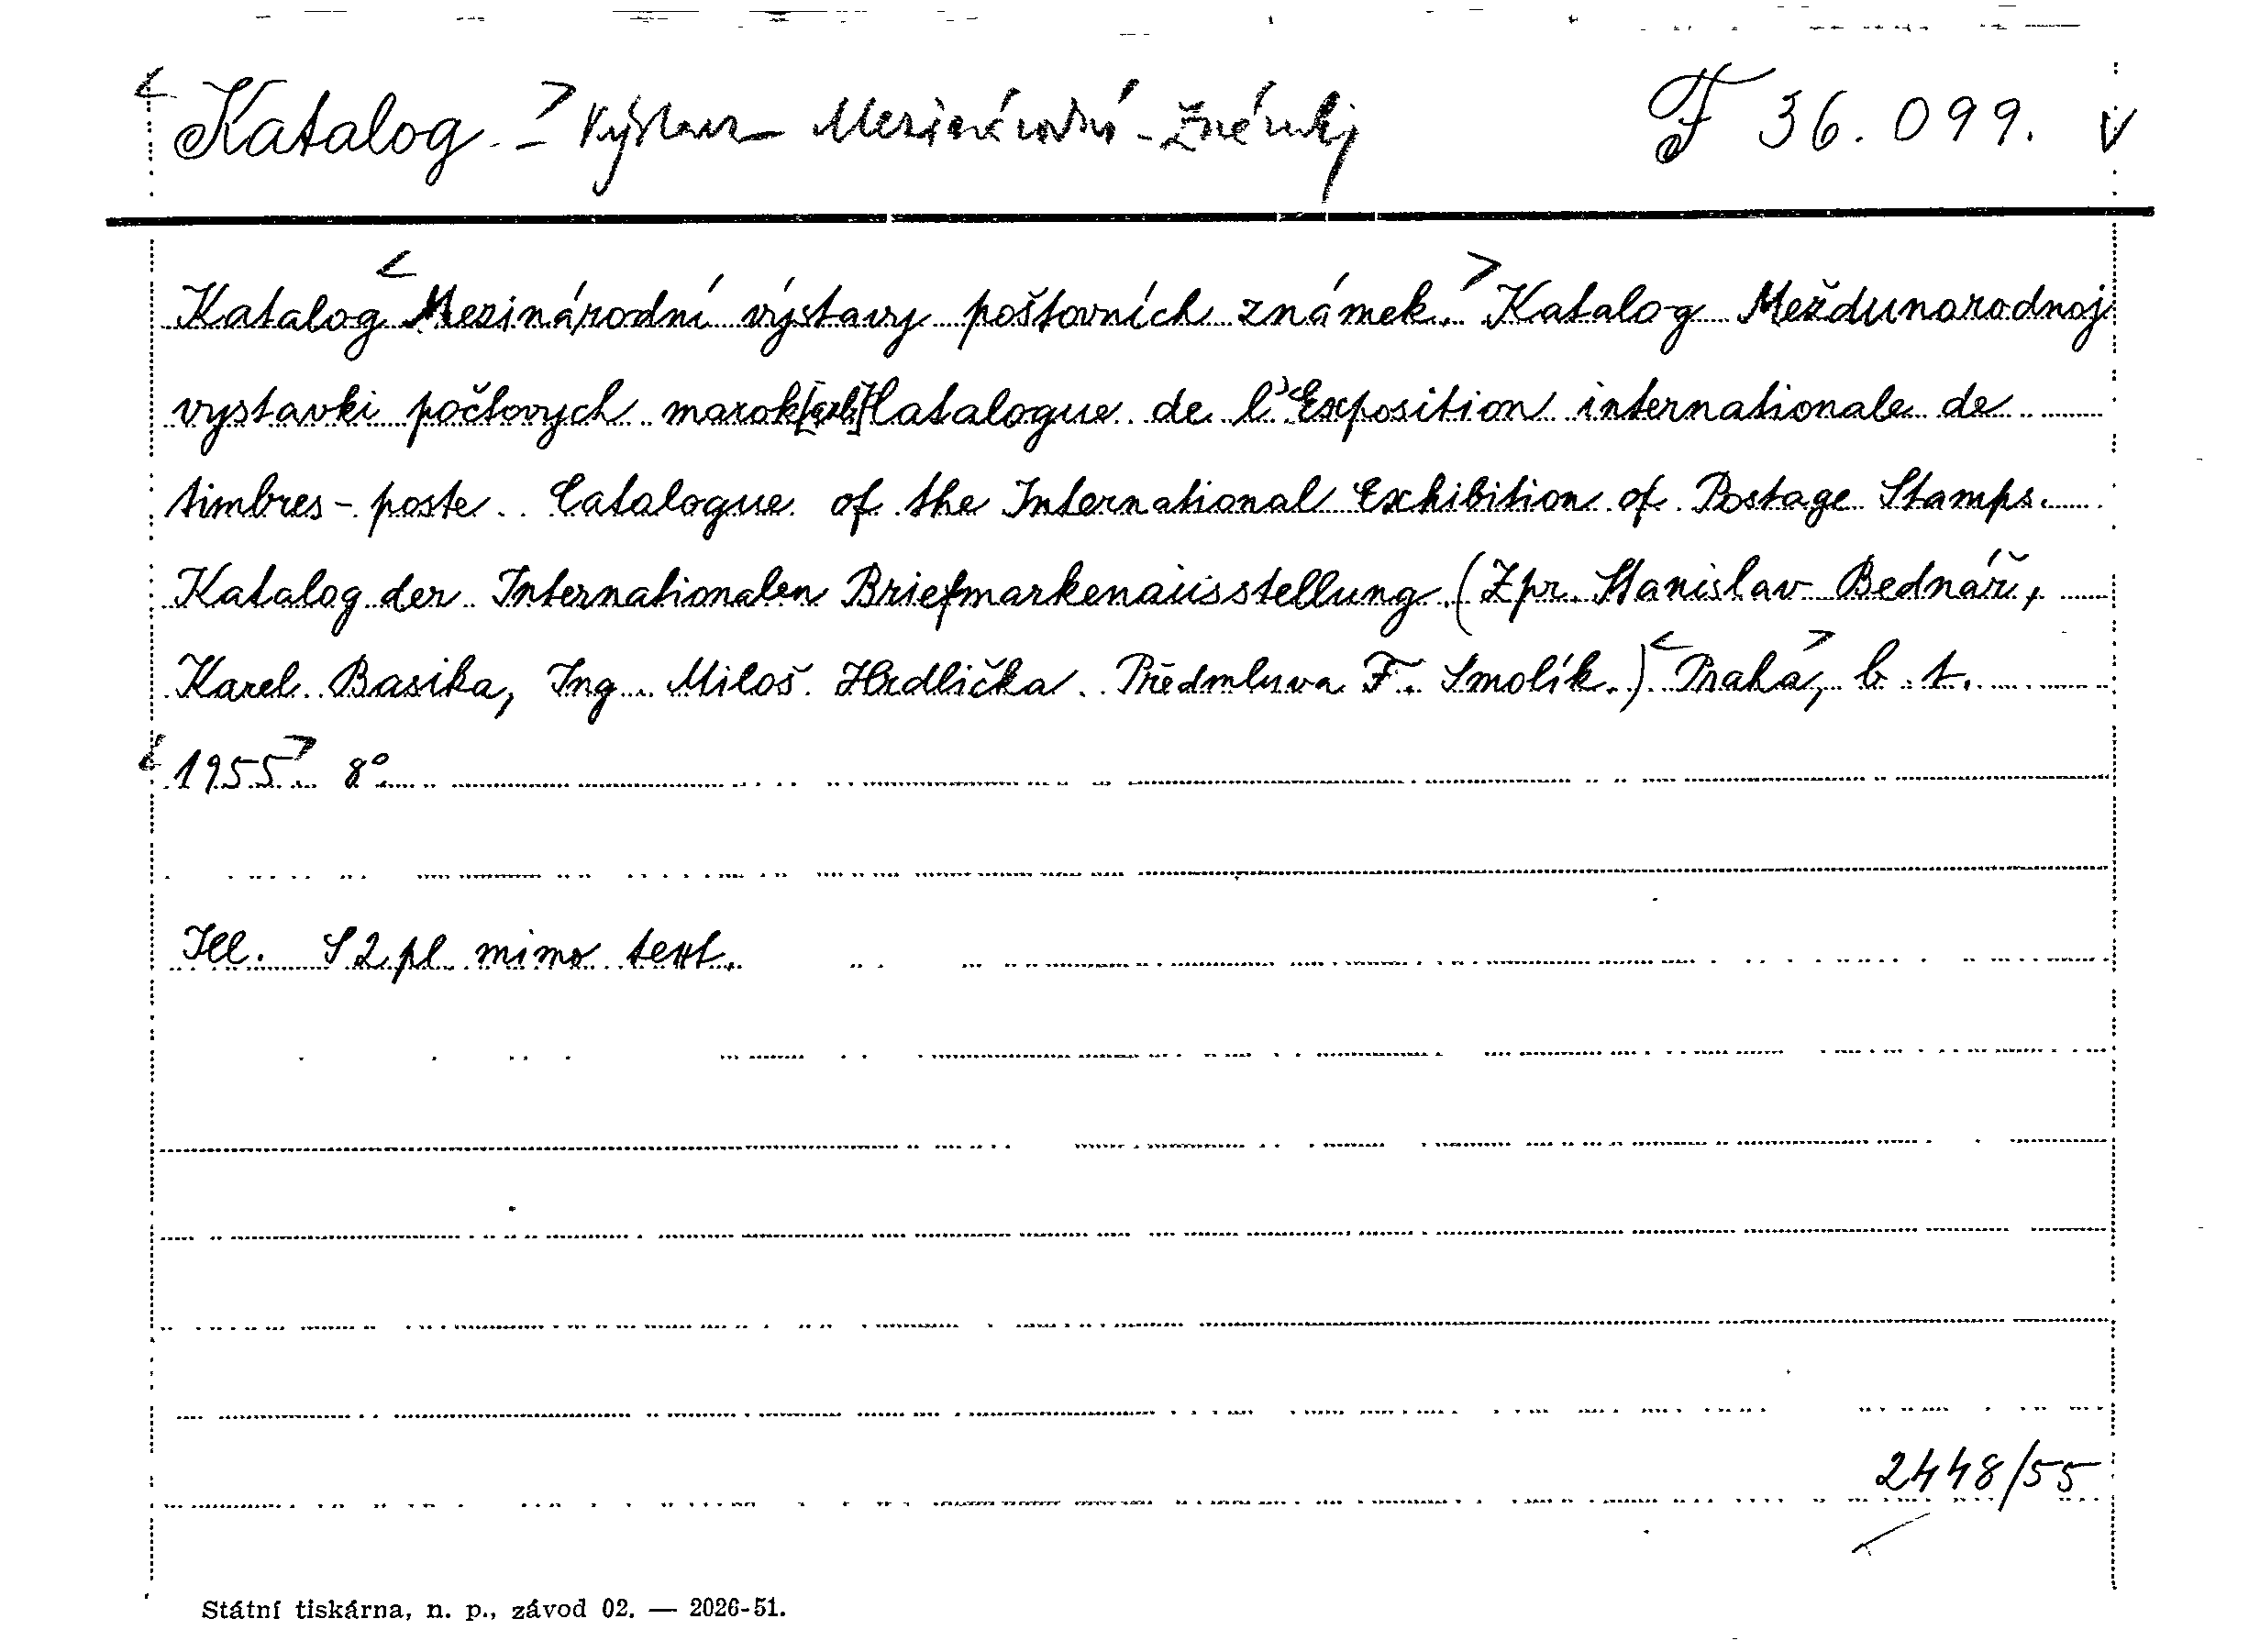 <Katalog - > Výstava - Mezinárodní - Známky F 36.099. v
Katalog <Mezinárodní výstavy poštovních známek.> Katalog Meždunarodnoj
vystavki počtovych marok [azb.] Catalogue de l'Exposition internationale de
timbres-poste. Catalogue of the International Exhibition of Postage Stamps.
Katalog der Internationalen Briefmarkenausstellung. (Zpr. Stanislav Bednář,
Karel Basika, Ing. Miloš Hrdlička. Předmluva F. Smolík.) <Praha>, b. t.
<1955>. 8°.
Ill. S 2 pl mimo text.
2448/55
Státní tiskárna, n. p., závod 02. — 2026-51.